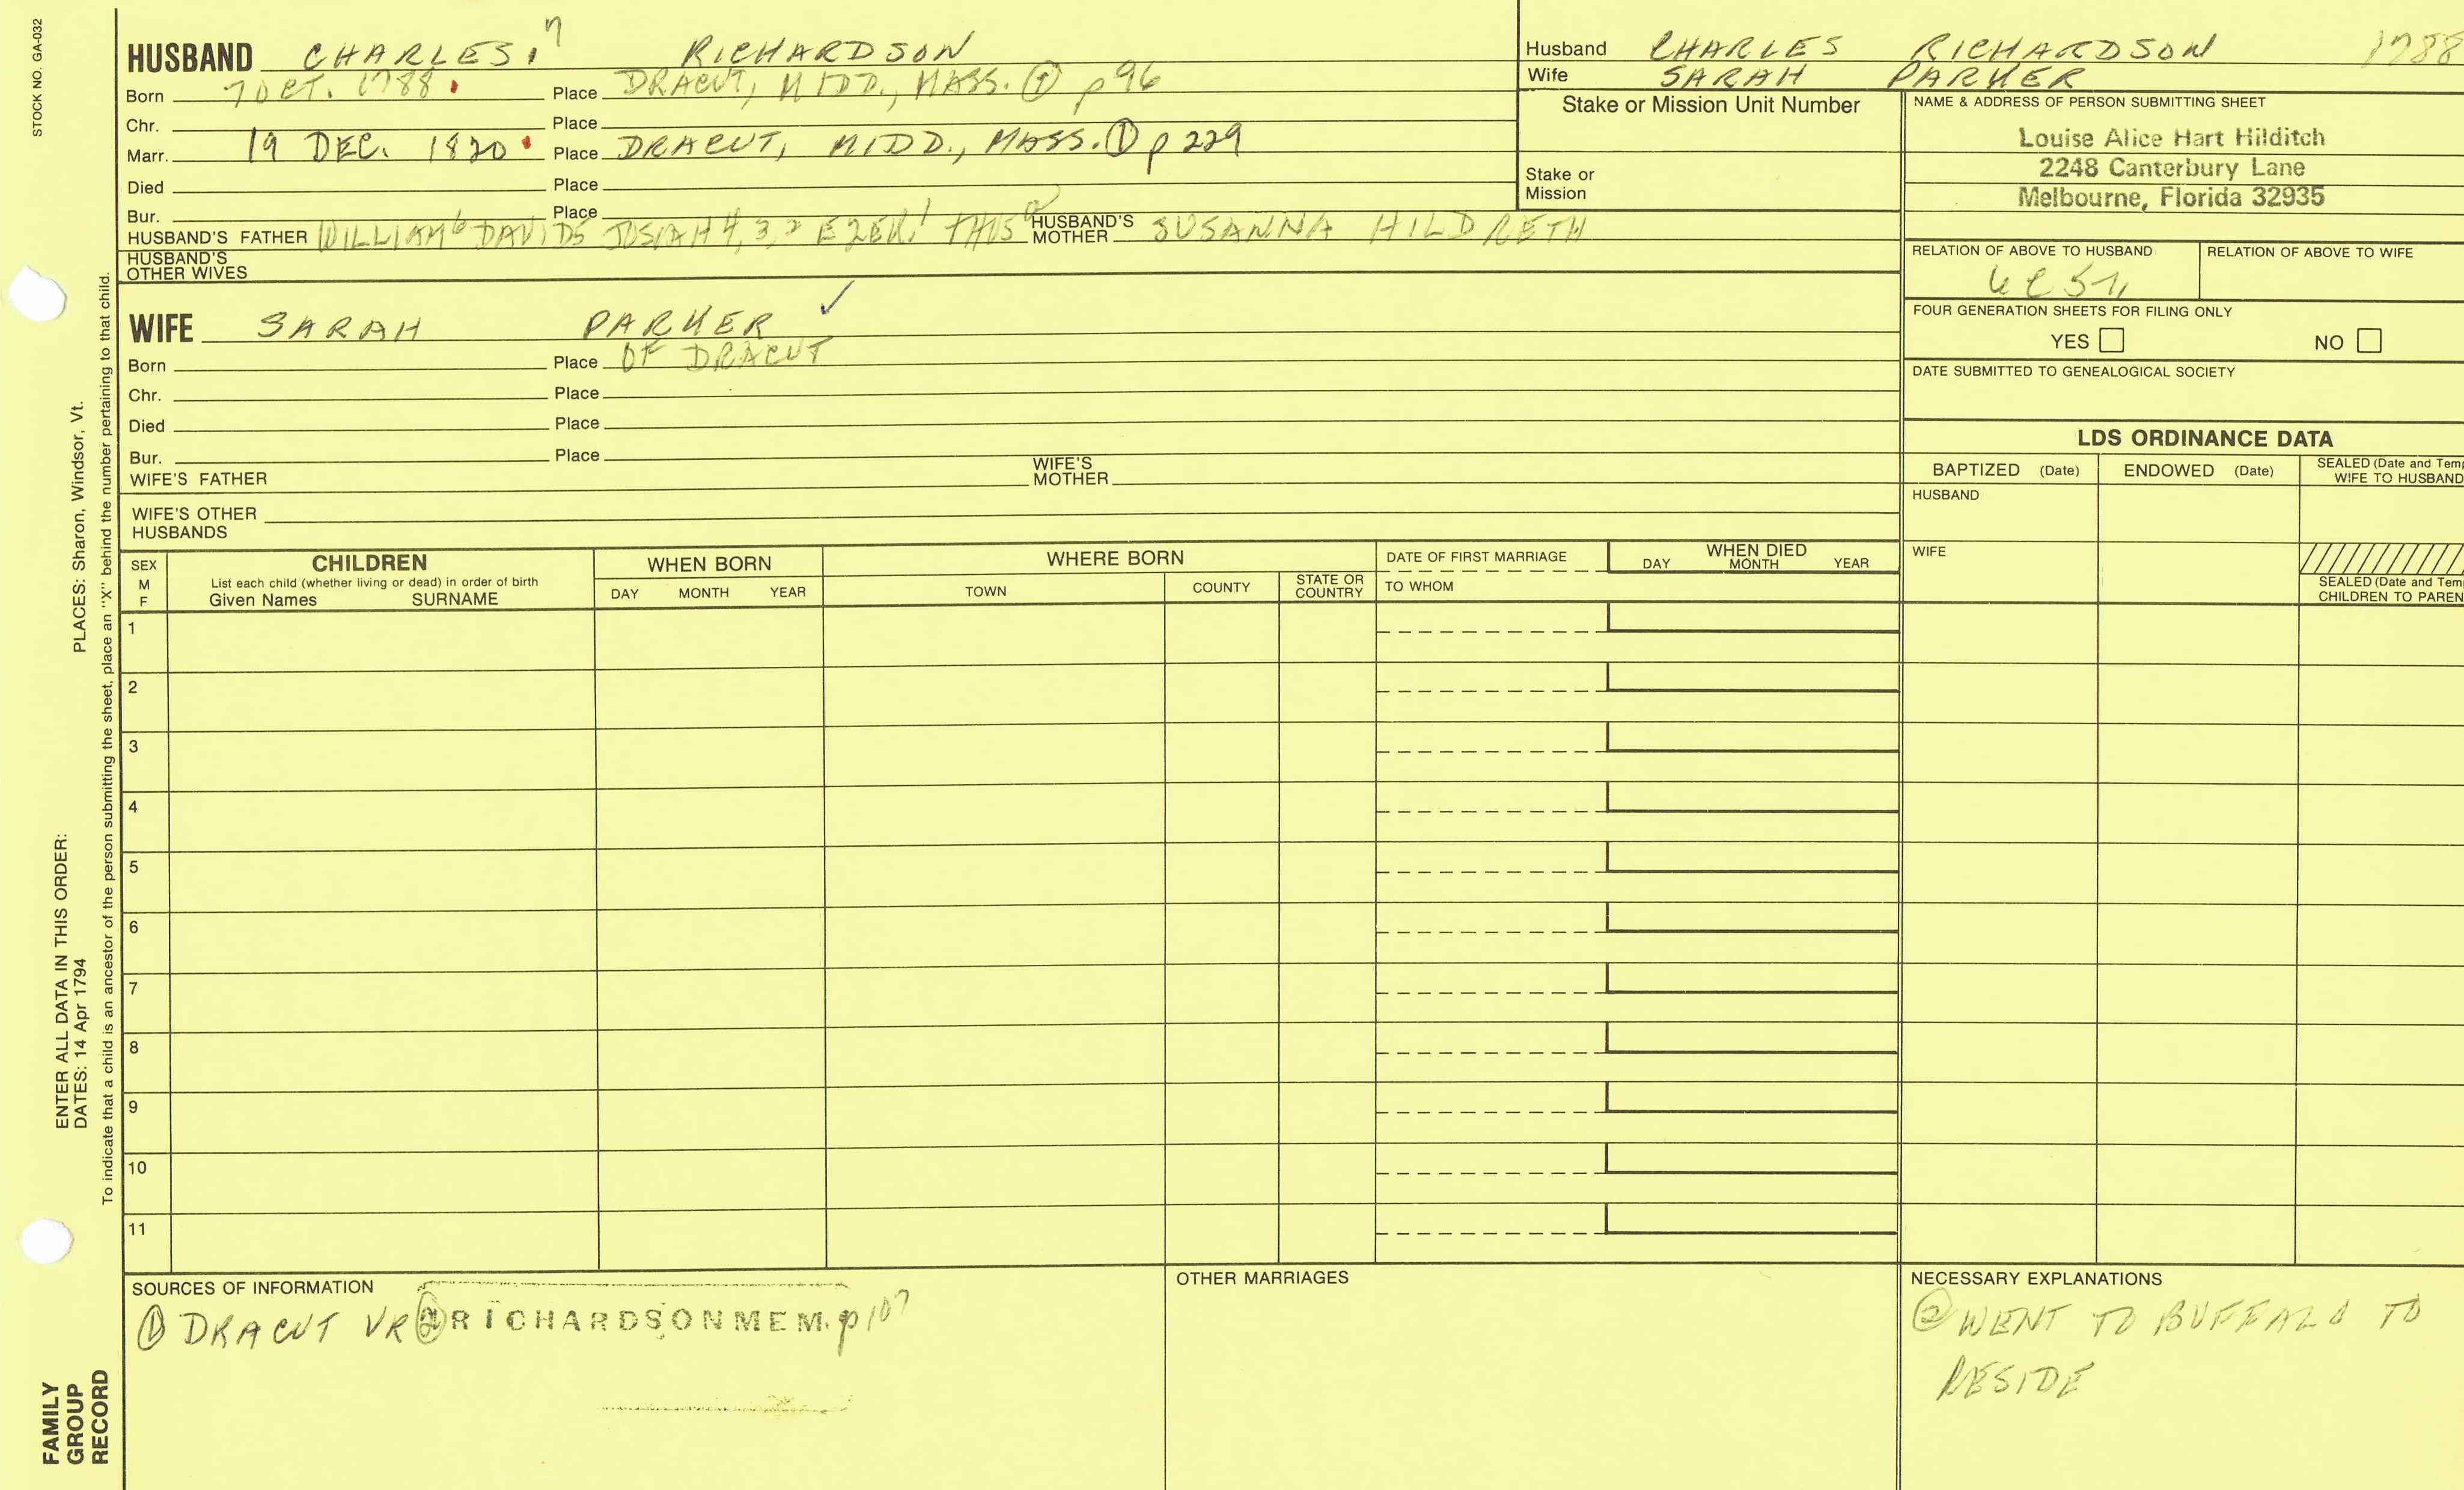 STOCK NO. GA-032
HUSBAND CHARLES,7 RICHARDSON
Born 7 OCT. 1788. Place DRACUT, MIDD., MASS. ① p 96
Chr. Place
Marr. 19 DEC. 1820 Place DRACUT, MIDD., MASS. ① p 229
Died Place
Bur. Place
HUSBAND'S FATHER WILLIAM6 DAVID5 JOSIAH 4,3,2 EZEK.1 THIS HUSBAND'S MOTHER SUSANNA HILDRETH
HUSBAND'S OTHER WIVES
WIFE SARAH PARKER ✓
Born Place OF DRACUT
Chr. Place
Died Place
Bur. Place
WIFE'S FATHER WIFE'S MOTHER
WIFE'S OTHER HUSBANDS
Husband CHARLES RICHARDSON 1788
Wife SARAH PARKER
Stake or Mission Unit Number
Stake or Mission
NAME & ADDRESS OF PERSON SUBMITTING SHEET
Louise Alice Hart Hilditch
2248 Canterbury Lane
Melbourne, Florida 32935
RELATION OF ABOVE TO HUSBAND RELATION OF ABOVE TO WIFE
FOUR GENERATION SHEETS FOR FILING ONLY
YES NO
DATE SUBMITTED TO GENEALOGICAL SOCIETY
LDS ORDINANCE DATA
BAPTIZED (Date) ENDOWED (Date) SEALED (Date and Tem
WIFE TO HUSBAND
HUSBAND
WIFE
SEALED (Date and Tem
CHILDREN TO PAREN
SEX M F
CHILDREN
List each child (whether living or dead) in order of birth
Given Names SURNAME
WHEN BORN
DAY MONTH YEAR
WHERE BORN
TOWN COUNTY STATE OR COUNTRY
DATE OF FIRST MARRIAGE
TO WHOM
WHEN DIED
DAY MONTH YEAR
1
2
3
4
5
6
7
8
9
10
11
SOURCES OF INFORMATION
① DRACUT VR ② RICHARDSON MEM. p 107
OTHER MARRIAGES
NECESSARY EXPLANATIONS
② WENT TO BUFFALO TO
RESIDE
ENTER ALL DATA IN THIS ORDER:
DATES: 14 Apr 1794 PLACES: Sharon, Windsor, Vt.
To indicate that a child is an ancestor of the person submitting the sheet, place an "X" behind the number pertaining to that child.
FAMILY
GROUP
RECORD